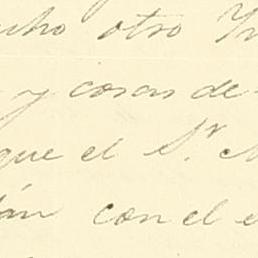 ucho otro
y cosas de
que el Sr.
tán con el e